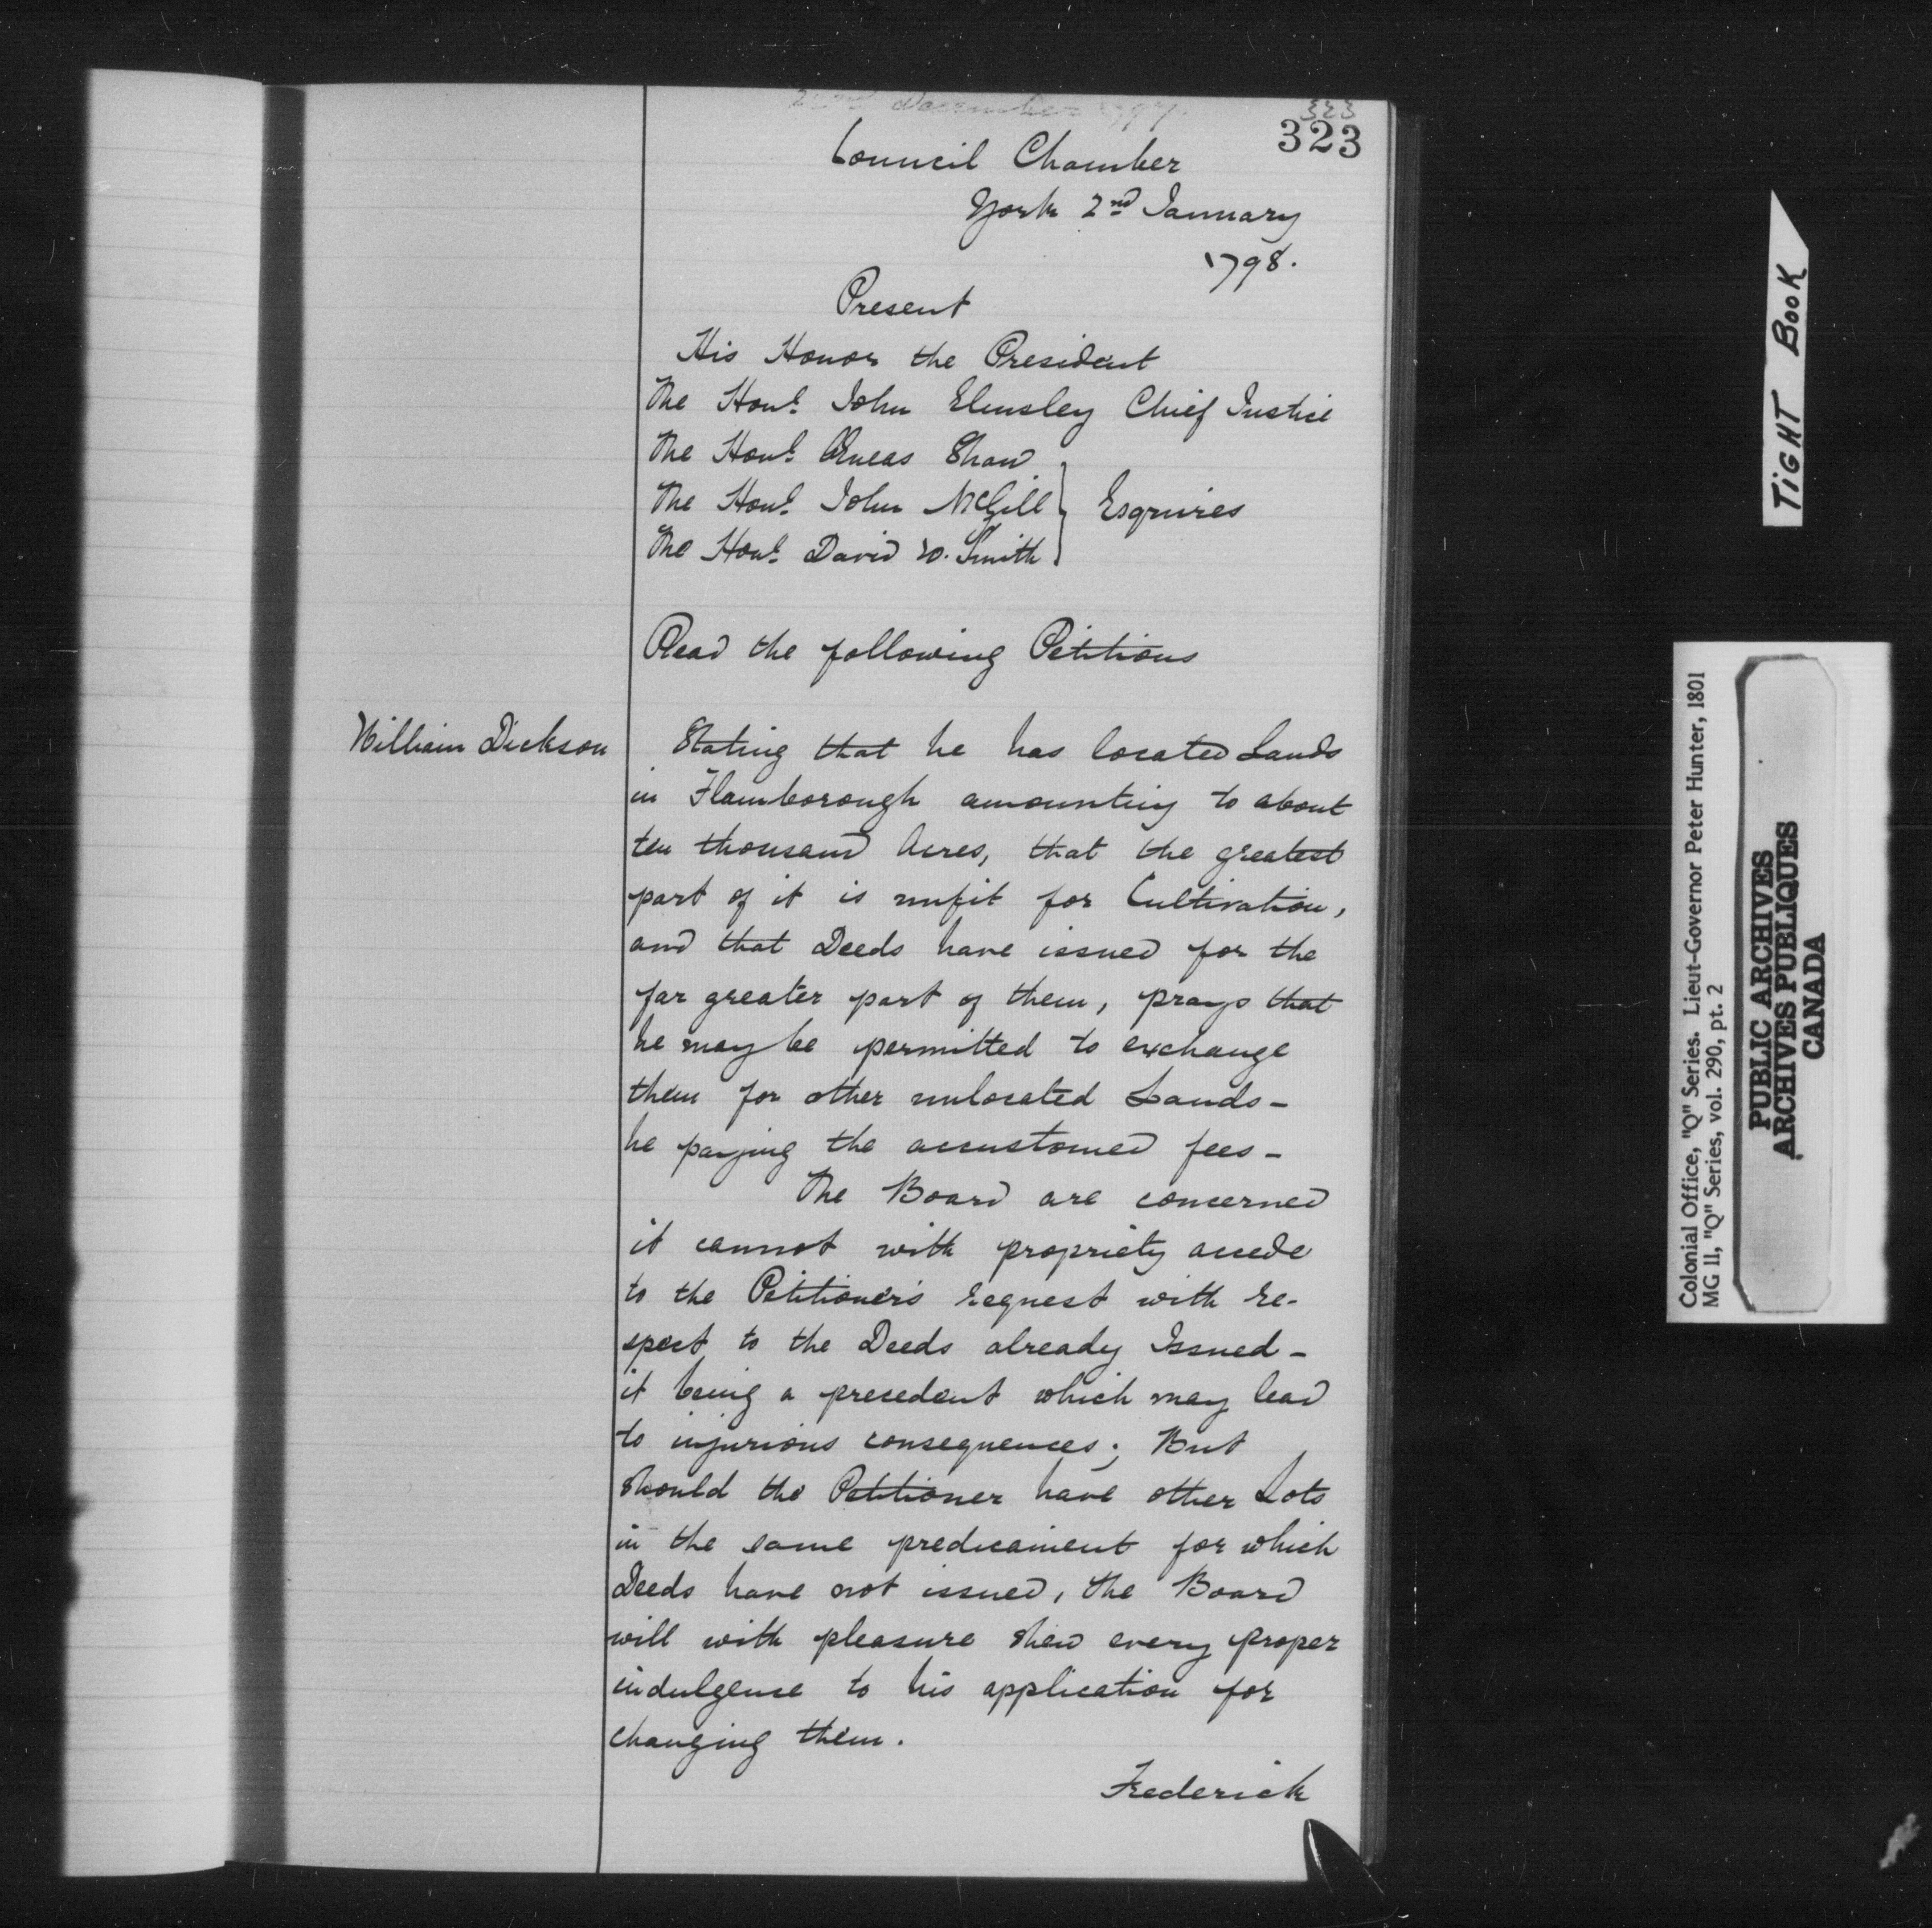 323
323
Council Chamber
York 2nd January
1798.
Present
His Honor the President
The Honl. John Elmsley Chief Justice
The Honl. Æneas Shaw
The Honl. John McGill } Esquires
The Honl. David W. Smith
Read the following Petitions
William Dickson
Stating that he has located Lands
in Flamborough amounting to about
ten thousand Acres, that the greatest
part of it is unfit for Cultivation,
and that Deeds have issued for the
far greater part of them, prays that
he may be permitted to exchange
them for other unlocated Lands -
he paying the accustomed fees -
The Board are concerned
it cannot with propriety accede
to the Petitioner's request with re-
spect to the Deeds already Issued -
it being a precedent which may lead
to injurious consequences; But
should the Petitioner have other Lots
in the same predicament for which
Deeds have not issued, the Board
will with pleasure shew every proper
indulgence to his application for
changing them.
Frederick
TIGHT BOOK
Colonial Office, "Q" Series. Lieut-Governor Peter Hunter, 1801
MG 11, "Q" Series, vol. 290, pt. 2
PUBLIC ARCHIVES
ARCHIVES PUBLIQUES
CANADA